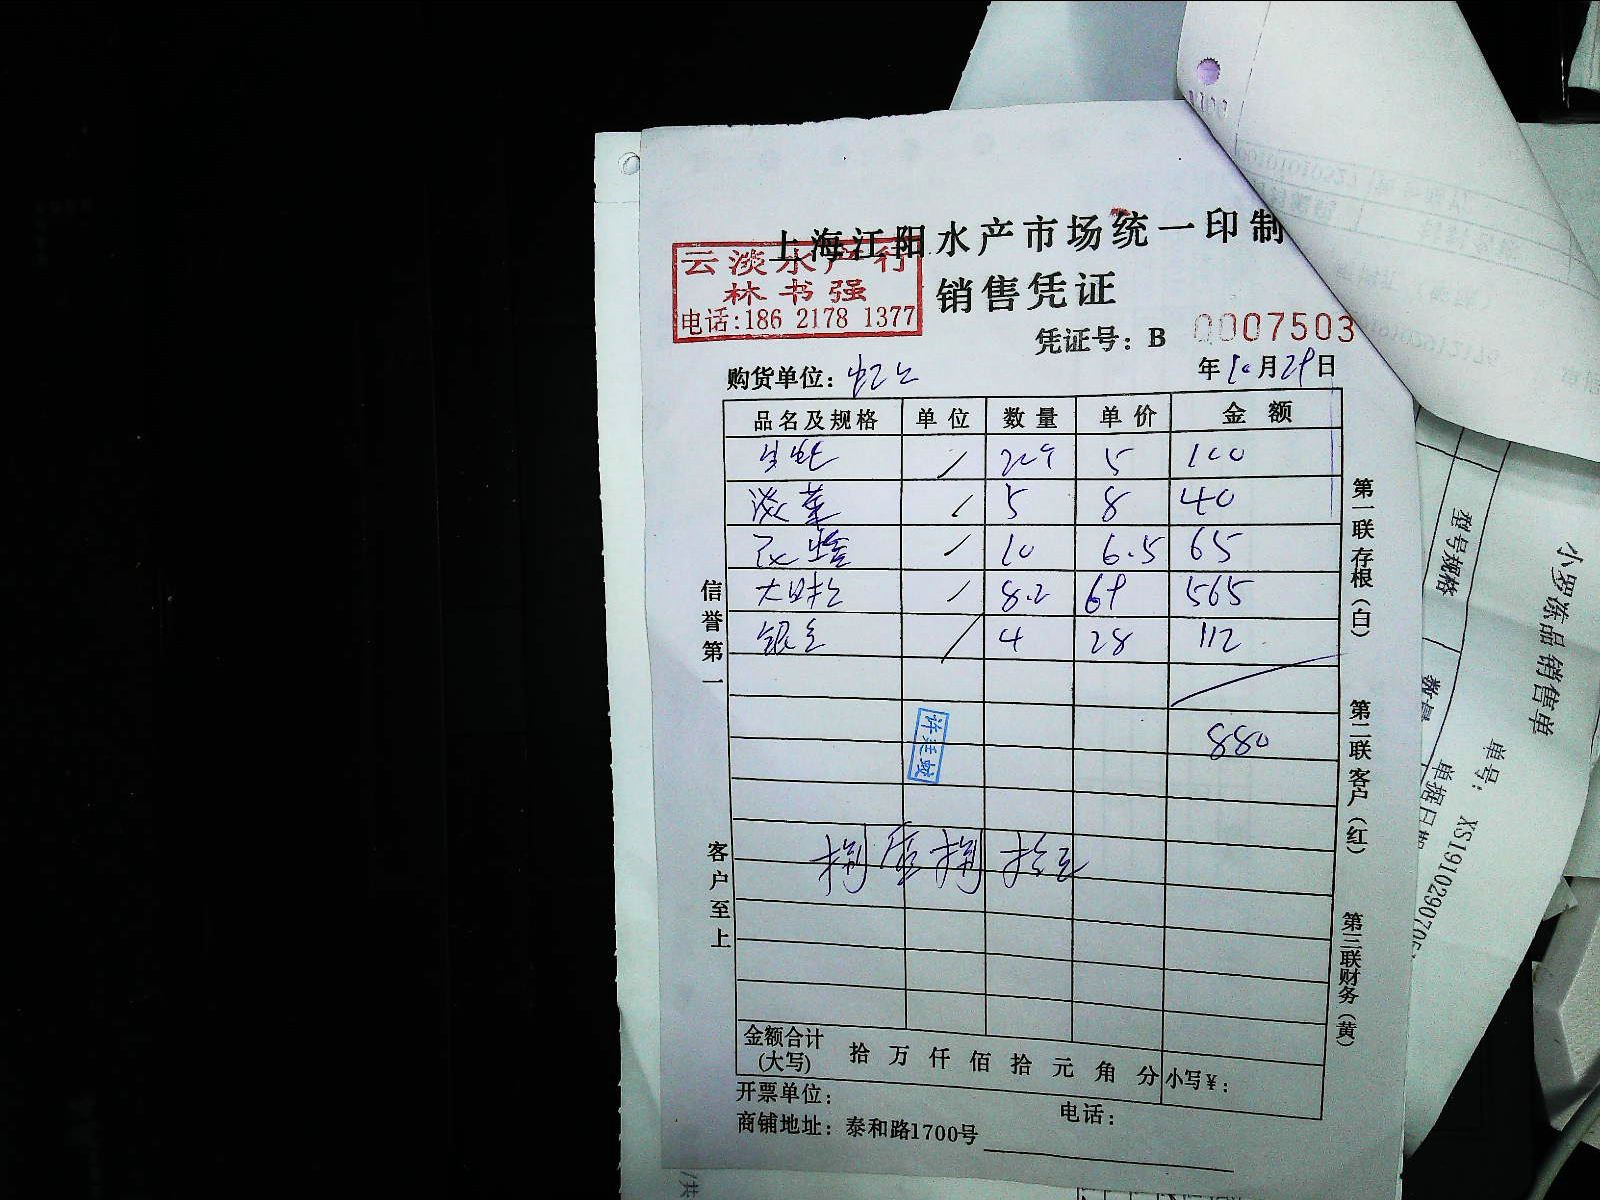 上海江阳水产市场统一印制
云淡水产行
林书强
电话:186 2178 1377
销售凭证
凭证号：B 0007503
购货单位：
年10月29日
品名及规格 单位 数量 单价 金额
/ 5 100
淡菜 / 5 8 40
/ 10 6.5 65
/ 8.2 69 565
/ 4 28 112
880
捌佰捌拾元
金额合计(大写) 拾 万 仟 佰 拾 元 角 分 小写￥：
开票单位： 电话：
商铺地址：泰和路1700号
信誉第一
客户至上
第一联存根（白）
第二联客户（红）
第三联财务（黄）
小罗冻品销售单
单号：XS1910290705
单据日期
型号规格
数量